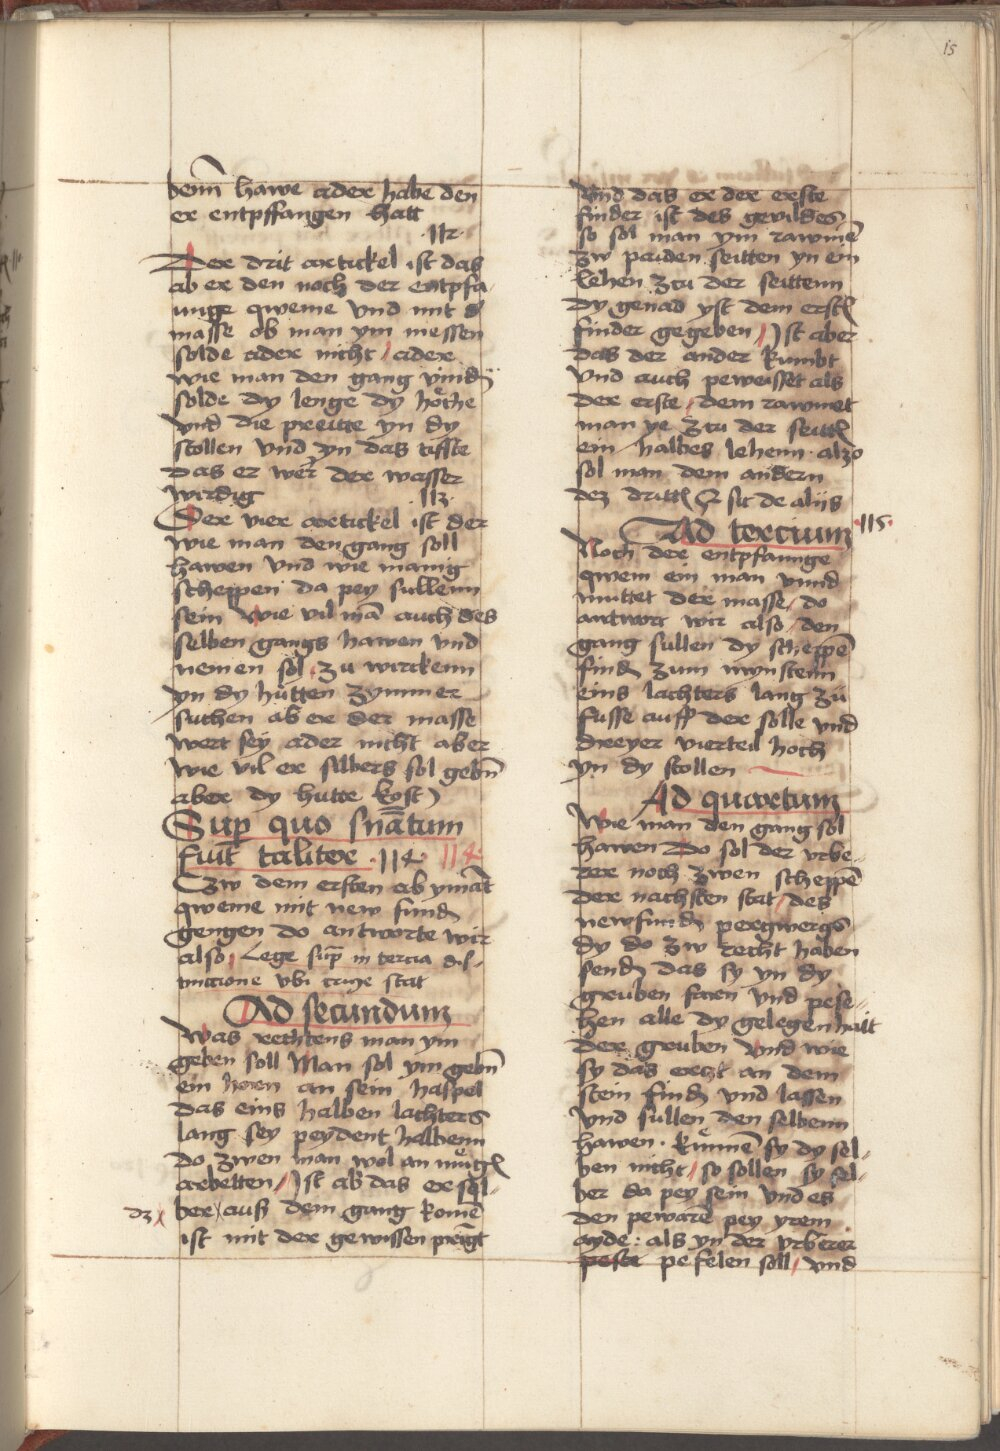 15
denn hawe ader habe den
er entpffangen hatt
112
Der drit artickel ist das
ab er den noch der entpfa-
unge qweme vnd mit d
masse ob man ym messen
solde ader nicht / ader
wie man den gang vind
solde dy lenge dy hőche
vnd die preitte yn dy
stollen vnd yn das tifste
das er wer der wasser
wirdig
113
Der vier artickel ist der
wie man den gang soll
hawen vnd wie manig
scheppen da pey sullenn
sein Wie vil mā auch des
selben gangs hawen vnd
nemen sol zu wirckenn
yn dy hütten zymmer
suchen ab er der masse
wert sey ader nicht aber
wie vil er silbers sol gebn̄
aber dy hutte kost
Sup quo sn̄atum
fuit taliter . 114 114
Czw dem ersten ab ymāt
qweme mit new fund
gengen do antworte wir
also / Lege sup̄ in tercia dis-
tinccione vbi stat
Ad secundum
Was rechtens man ym
geben soll Man sol ym gebn̄
ein hern an sein haspel
das eins halben lachters
lang sey peydent halbenn
do zwen man wol an müg
arbeiten / Ist ab das er sel-
dz ber auß dem gang komē
ist mit der gewissen
Vnd das er der erste
finder ist des gevildes
so sol man ym rawmē
zw paiden seitten yn ein
lehen ztu der seittenn
dy genad yst dem erst
finder gegeben / Ist aber
das der ander kumbt
vnd auch peweisset als
der erste / dem rawmet
man ye ztu der seitt
ein halbes lehenn . alzo
sol man dem andern
dez dritt sit de aliis
Ad tercium 115
Noch der entpfaunge
qwem ein man vnnd
muttet der masse / do
antwort wir also / den
gang sullen dy scheppē
find zum mynstenn
eins lachters lang zü
fusse auff der solle vnd
dreyer vierteil hoch
yn dy stollen
Ad quartum
Wie man den gang sol
hawen Do sol der vrbe-
rer noch zwen scheppē
der nachsten stat / des
newfund pergwergs
dy do zw recht haben
send das sy yn dy
gruben farn vnd pese-
hen alle dy gelegenhait
der gruben vnd wie
sy das erczt an dem
stein find vnd lassen
vnd sullen den selbenn
hawen . Künnē sy dy sel-
ben nicht / so sollen sy sel-
ber da pey sein vnd es
den pewarē pey yrem
ayde : als yn der vrberer
pefelen soll / vnd